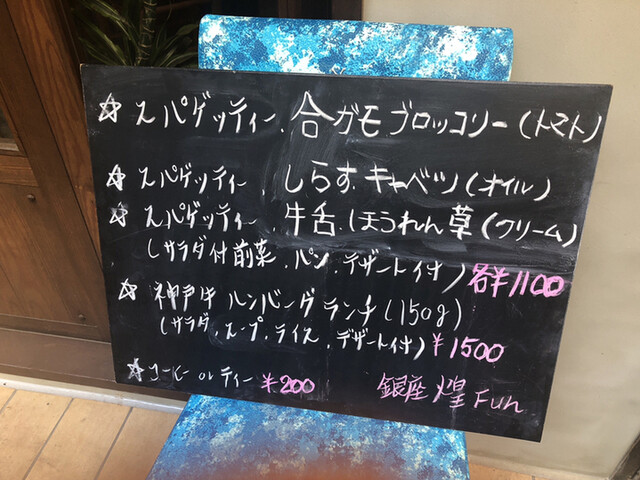 ☆ スパゲッティー、合ガモブロッコリー(トマト)
☆ スパゲッティー、しらす、キャベツ(オイル)
☆ スパゲッティー、牛舌、ほうれん草(クリーム)
(サラダ付前菜、パン、デザート付) 各¥1100
☆ 神戸牛ハンバーグランチ(150g)
(サラダ、スープ、ライス、デザート付) ¥1500
☆ コーヒー or ティー ¥200
銀座 煌 Fun